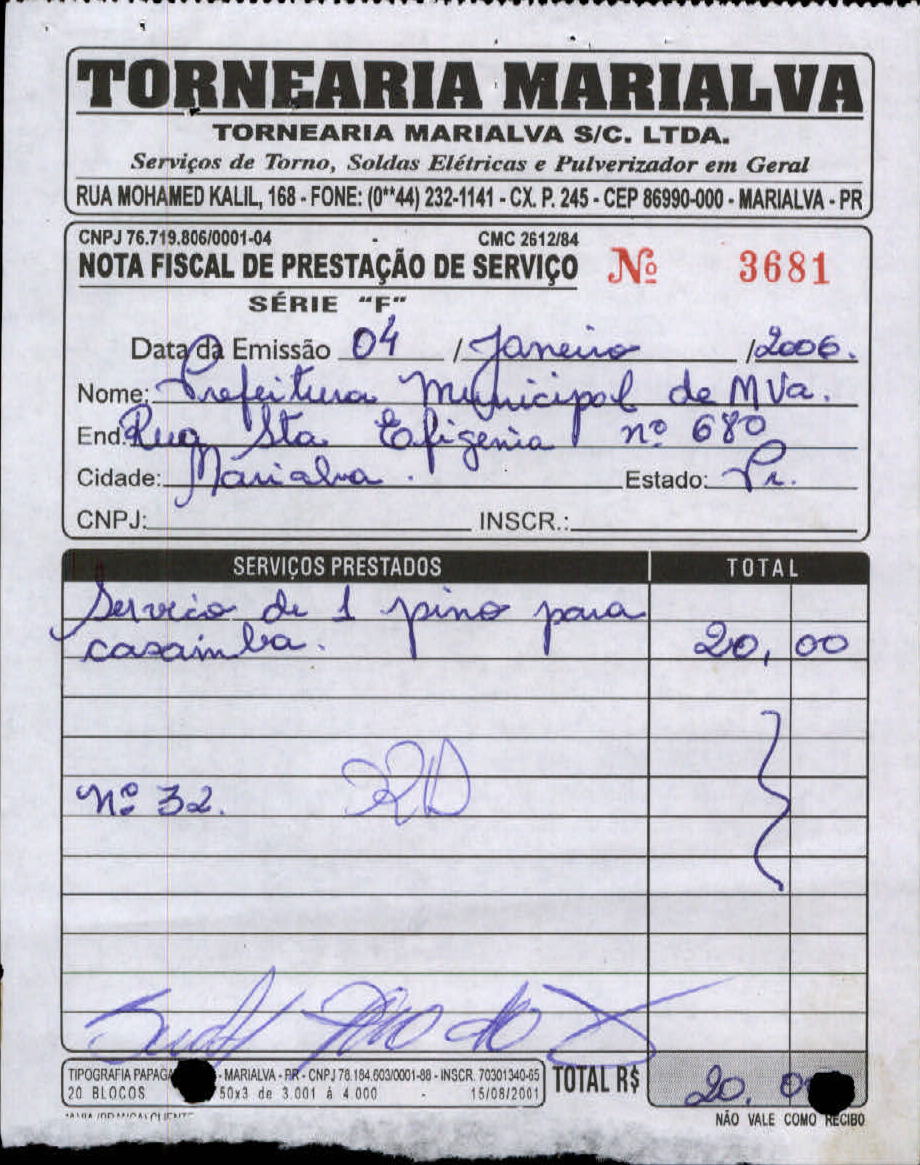 TORNEARIA MARIALVA
TORNEARIA MARIALVA S/C. LTDA.
Serviços de Torno, Soldas Elétricas e Pulverizador em Geral
RUA MOHAMED KALIL, 168 - FONE: (0**44) 232-1141 - CX. P. 245 - CEP 86990-000 - MARIALVA - PR
CNPJ 76.719.806/0001-04 CMC 2612/84
NOTA FISCAL DE PRESTAÇÃO DE SERVIÇO Nº 3681
SÉRIE "F"
Data da Emissão 04 / Janeiro /2006.
Nome: Prefeitura Municipal de MVa.
End. Rua Sta Efigenia nº 680
Cidade: Marialva. Estado: Pr.
CNPJ: INSCR.:
SERVIÇOS PRESTADOS TOTAL
Servico de 1 pino para
casaimba. 20,00
Nº 32.
TIPOGRAFIA - MARIALVA - PR - CNPJ 78.184.603/0001-88 - INSCR. 70301340-65
20 BLOCOS 50x3 de 3.001 à 4.000 - 15/08/2001
TOTAL R$ 20.
NÃO VALE COMO RECIBO